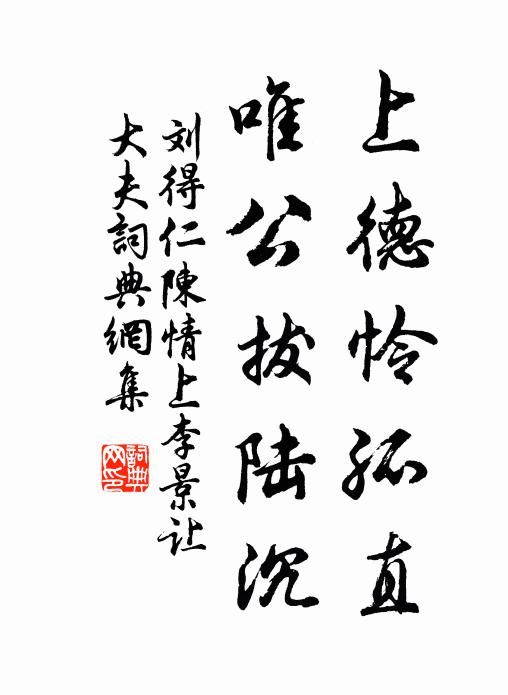 上德怜孤直
唯公拔陆沉
刘得仁陳情上李景让
大夫詞典網集
詞典网印